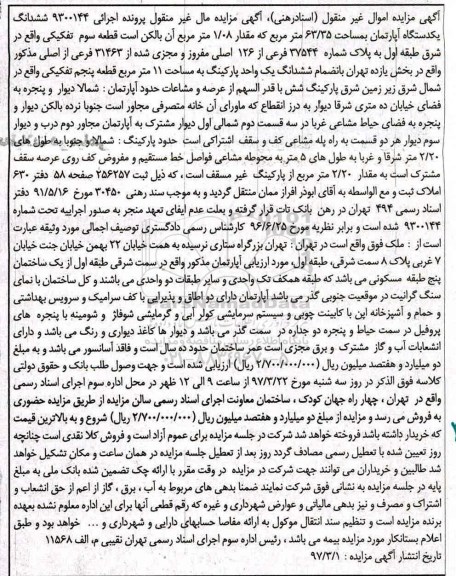 آگهی مزایده اموال غیر منقول (اسنادرهنی)، آگهی مزایده مال غیر منقول پرونده اجرائی ۹۳۰۰۱۴۴ ششدانگ
یکدستگاه آپارتمان بمساحت ۶۳/۳۵ متر مربع که مقدار ۱/۰۸ متر مربع آن بالکن است قطعه سوم تفکیکی واقع در
شرق طبقه اول به پلاک شماره ۳۷۵۴۴ فرعی از ۱۲۶ اصلی مفروز و مجزی شده از ۳۱۴۶۳ فرعی از اصلی مذکور
واقع در بخش یازده تهران بانضمام ششدانگ یک واحد پارکینگ به مساحت ۱۱ متر مربع قطعه پنجم تفکیکی واقع در
شمال شرق زیر زمین شرق پارکینگ شش با قدر السهم از عرصه و مشاعات حدود آپارتمان : شمالا دیوار و پنجره به
فضای خیابان ده متری شرقا دیوار به درز انقطاع که ماورای آن خانه متصرفی مجاور است جنوبا نرده بالکن دیوار و
پنجره به فضای حیاط مشاعی غربا در سه قسمت دوم شمالی اول دیوار مشترک به آپارتمان مجاور دوم درب و دیوار
سوم دیوار هر دو قسمت به راه پله مشاعی کف و سقف اشتراکی است حدود پارکینگ : شمالا و جنوبا به طول های
۲/۲۰ متر شرقا و غربا به طول های ۵ متر به محوطه مشاعی فواصل خط مستقیم و مفروض کف روی عرصه سقف
مشترک است به مقدار ۲/۲۰ متر مربع از پارکینگ غیر مسقف است ، که ذیل ثبت ۲۵۶۲۵۷ صفحه ۵۸ دفتر ۶۳۰
املاک ثبت و مع الواسطه به آقای ابوذر افراز ممان منتقل گردید و به موجب سند رهنی ۳۰۴۵۰ مورخ ۹۱/۵/۱۶ دفتر
اسناد رسمی ۴۹۴ تهران در رهن بانک تات قرار گرفته و بعلت عدم ایفای تعهد منجر به صدور اجراییه تحت شماره
۹۳۰۰۱۴۴ شده است و برابر نظریه مورخ ۹۶/۶/۲۵ کارشناس رسمی دادگستری توصیف اجمالی مورد وثیقه عبارت
است از : ملک فوق واقع است در تهران : تهران بزرگراه ستاری نرسیده به همت خیابان ۲۲ بهمن خیابان جنت خیابان
۷ غربی پلاک ۸ سمت شرقی، طبقه اول، مورد ارزیابی آپارتمان مذکور واقع در سمت شرقی طبقه اول از یک ساختمان
پنج طبقه مسکونی می باشد که طبقه همکف تک واحدی و سایر طبقات دو واحدی می باشند و کل ساختمان با نمای
سنگ گرانیت در موقعیت جنوبی گذر می باشد آپارتمان دارای دو اطاق و پذیرایی با کف سرامیک و سرویس بهداشتی
و حمام و آشپزخانه اپن با کابینت چوبی و سیستم سرمایشی کولر آبی و گرمایشی شوفاژ و شومینه با پنجره های
پروفیل در سمت حیاط و پنجره دو جداره در سمت گذر می باشد و دیوار ها کاغذ دیواری و رنگ می باشد و دارای
انشعابات آب و گاز مشترک و برق مجزی است عمر ساختمان حدود ده سال است و فاقد آسانسور می باشد و به مبلغ
دو میلیارد و هفتصد میلیون ریال (۲/۷۰۰/۰۰۰/۰۰۰ ریال) ارزیابی شده است و جهت وصول طلب بانک و حقوق دولتی
کلاسه فوق الذکر در روز سه شنبه مورخ ۹۷/۳/۲۲ از ساعت ۹ الی ۱۲ ظهر در محل اداره سوم اجرای اسناد رسمی
واقع در تهران ، چهار راه جهان کودک ، ساختمان معاونت اجرای اسناد رسمی سالن مزایده از طریق مزایده حضوری
به فروش می رسد و مزایده از مبلغ دو میلیارد و هفتصد میلیون ریال (۲/۷۰۰/۰۰۰/۰۰۰ ریال) شروع و به بالاترین قیمت
که خریدار داشته باشد فروخته خواهد شد شرکت در جلسه مزایده برای عموم آزاد است و فروش کلا نقدی است چنانچه
روز تعیین شده با تعطیل رسمی مصادف گردد روز بعد از تعطیل جلسه مزایده در همان ساعت و مکان تشکیل خواهد
شد طالبین و خریداران می توانند جهت شرکت در مزایده در وقت مقرر با ارائه چک تضمین شده بانک ملی به مبلغ
پایه در جلسه مزایده به نشانی فوق شرکت نمایند ضمنا بدهی های مربوط به آب ، برق ، گاز از اعم از حق انشعاب و
اشتراک و مصرف و نیز بدهی مالیاتی و عوارض شهرداری و غیره که رقم قطعی آنها برای این اداره معلوم نشده بعهده
برنده مزایده است و تنظیم سند انتقال موکول به ارائه مفاصا حسابهای دارایی و شهرداری و ... خواهد بود و طبق
اعلام بستانکار مورد مزایده بیمه می باشد ، رئیس اداره سوم اجرای اسناد رسمی تهران نقیبی م، الف ۱۱۵۶۸
تاریخ انتشار آگهی مزایده : ۹۷/۳/۱